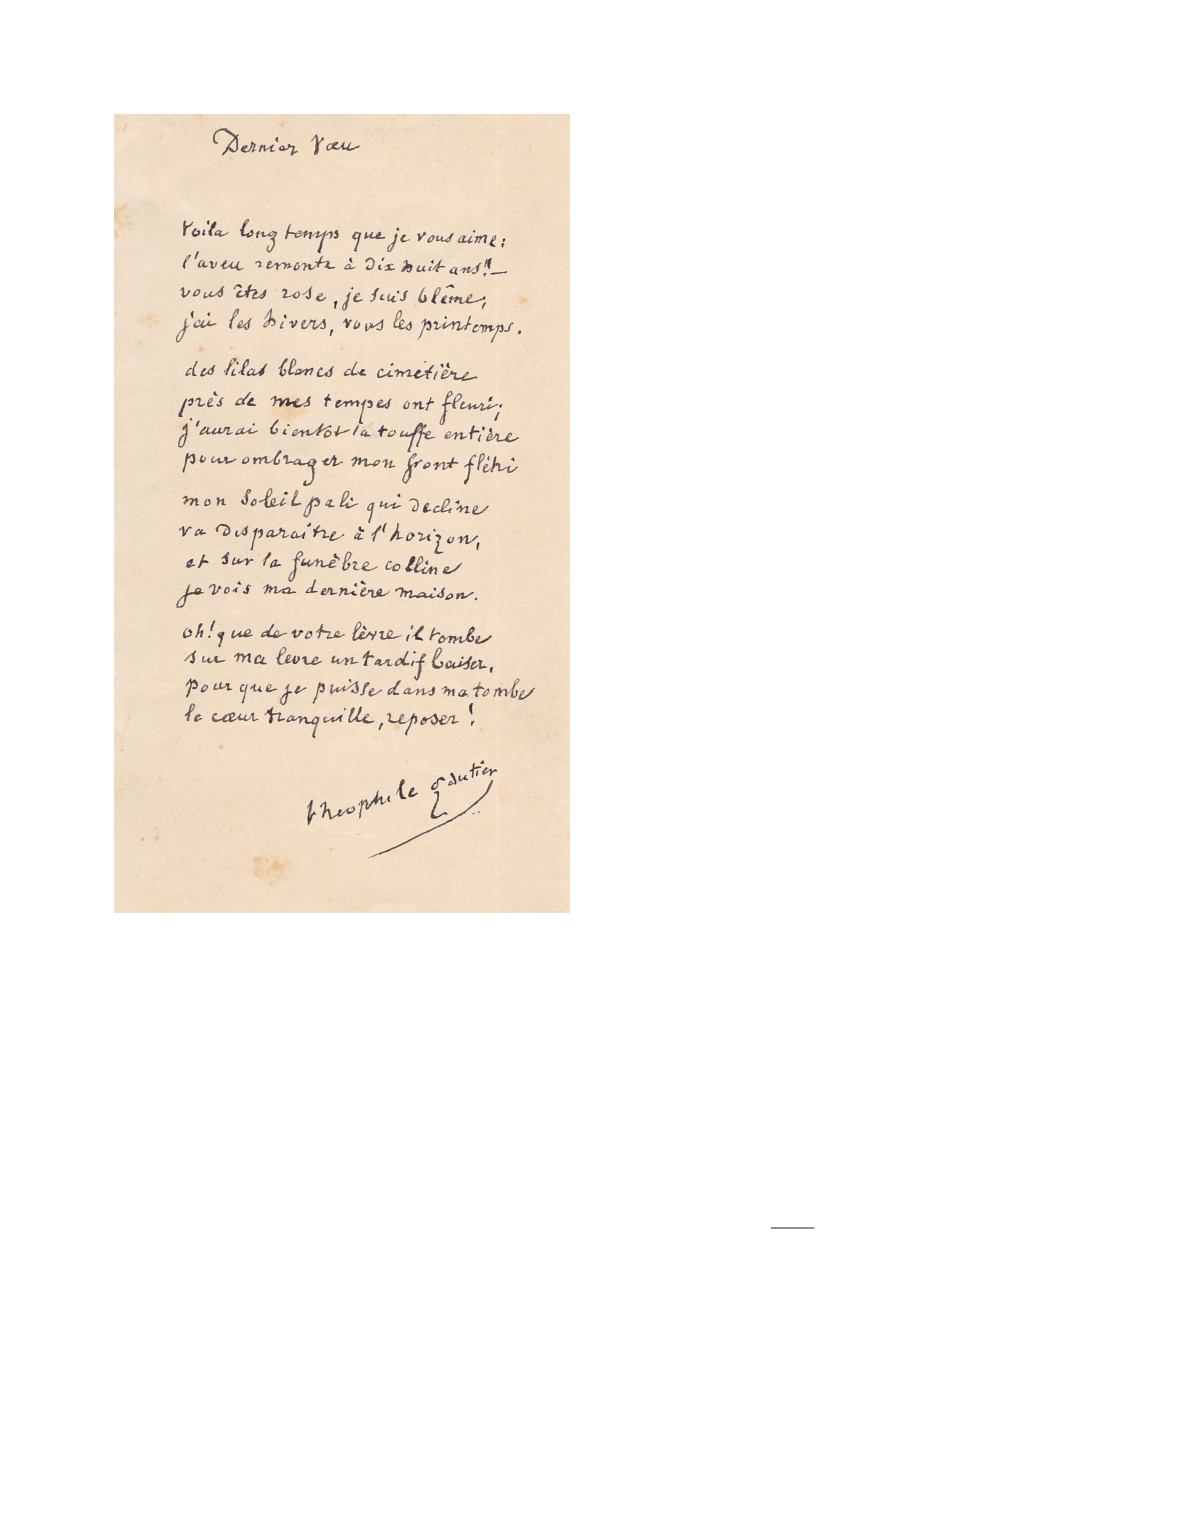 Dernier Vœu
Voila longtemps que je vous aime:
l'aveu remonte à dix huit ans!!—
vous êtes rose, je suis blême,
j'ai les hivers, vous les printemps.
des lilas blancs de cimetière
près de mes tempes ont fleuri;
j'aurai bientot la touffe entière
pour ombrager mon front flétri
mon soleil pali qui decline
va disparaître à l'horizon,
et sur la funèbre colline
je vois ma dernière maison.
oh! que de votre lèvre il tombe
sur ma levre un tardif baiser,
pour que je puisse dans ma tombe
le cœur tranquille, reposer!
theophile Gautier